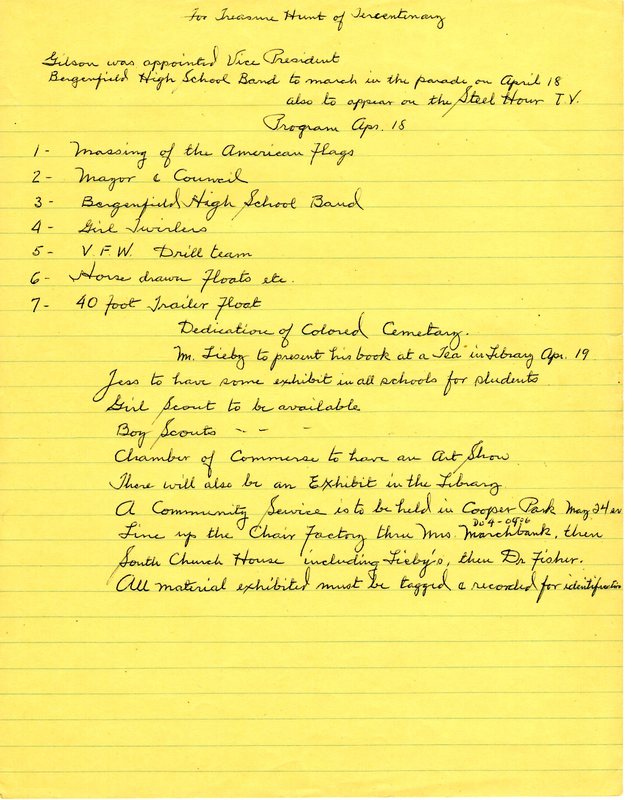 For Treasure Hunt of Tercentenary
Gilson was appointed Vice President
Bergenfield High School Band to march in the parade on April 18
also to appear on the Steel Hour T.V.
Program Apr. 18
1- Massing of the American Flags
2- Mayor & Council
3- Bergenfield High School Band
4- Girl Twirlers
5- V.F.W. Drill team
6- Horse drawn Floats etc.
7- 40 foot Trailer Float
Dedication of Colored Cemetary.
Mr. Lieby to present his book at a "Tea" in Library Apr. 19
Jess to have some exhibit in all schools for students
Girl Scout to be available
Boy Scouts - - -
Chamber of Commerse to have an Art Show
There will also be an Exhibit in the Library
A Community Service is to be held in Cooper Park May 24 ev
Du 4-0996
Line up the Chair Factory thru Mrs. Marchbank, then
South Church House including Lieby's, then Dr Fisher.
All material exhibited must be tagged & recorded for identification